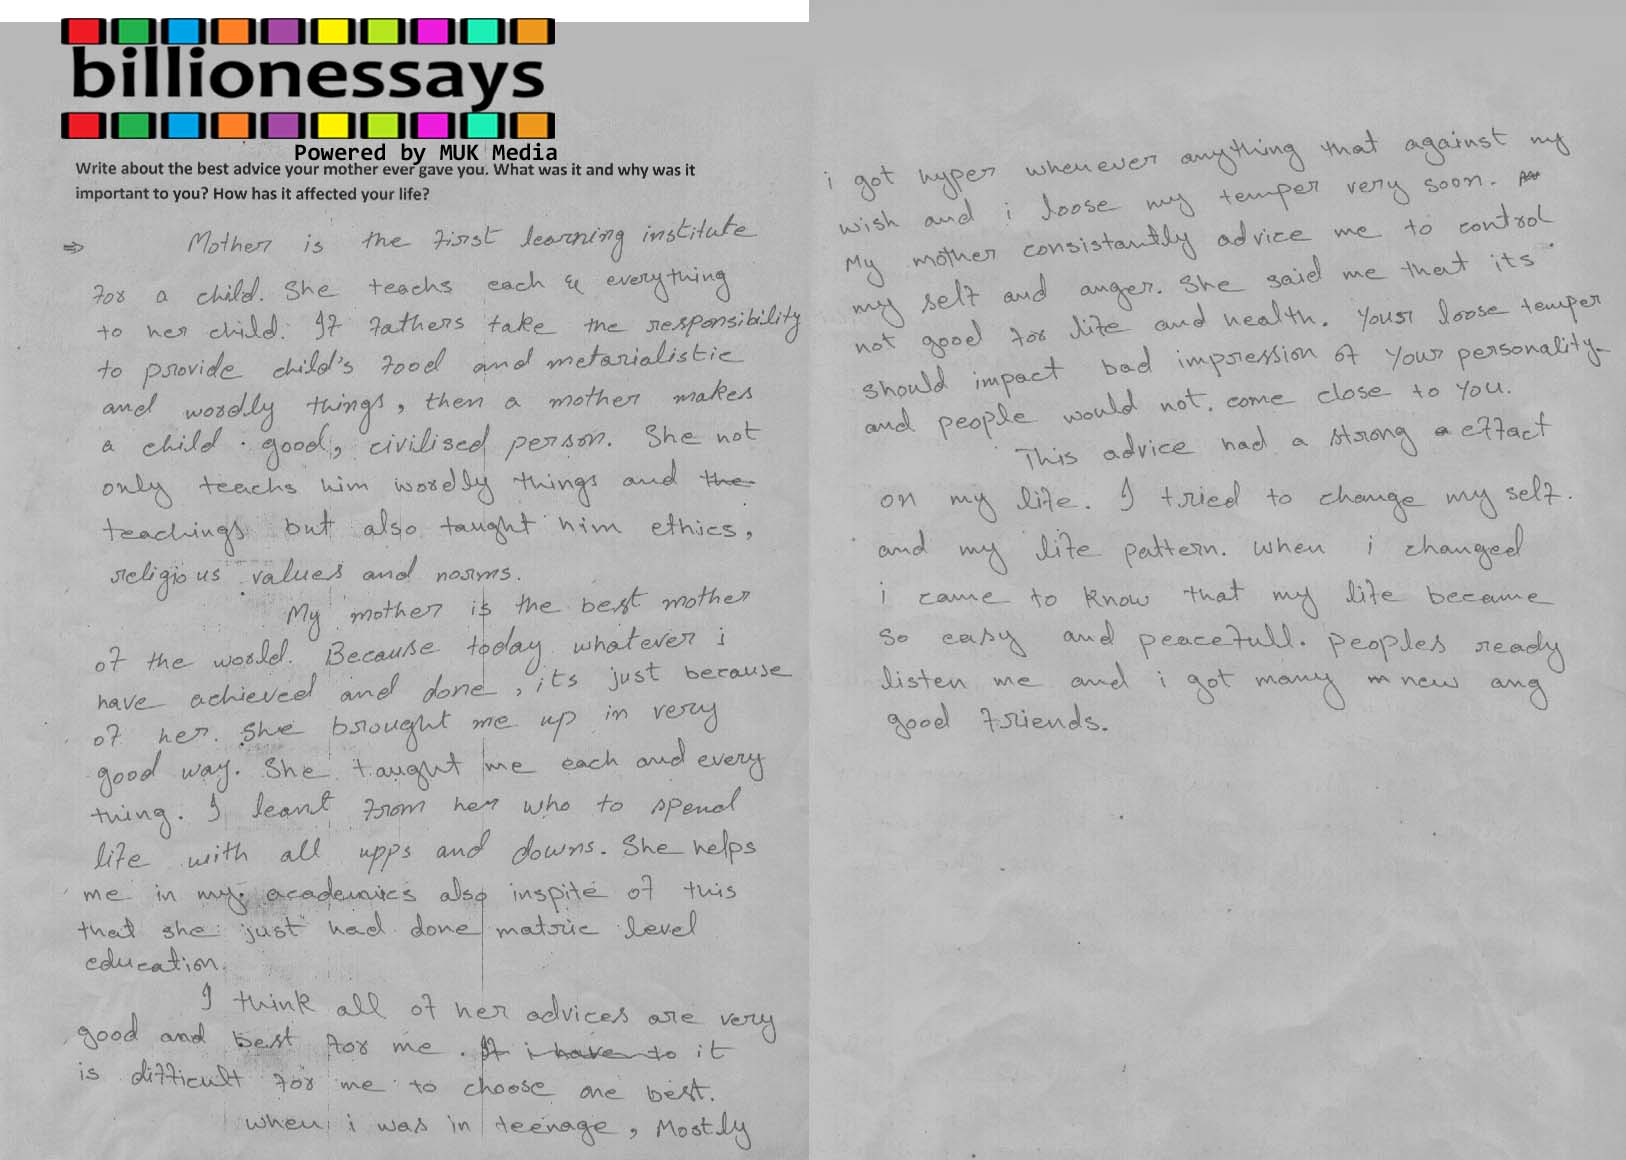 billionessays
Powered by MUK Media
Write about the best advice your mother ever gave you. What was it and why was it
important to you? How has it affected your life?
⇒ Mother is the first learning institute
for a child. She teachs each & everything
to her child. If fathers take the responsibility
to provide child's food and metarialistic
and wordly things, then a mother makes
a child good, civilised person. She not
only teachs him wordly things and the
teachings but also taught him ethics,
religious values and norms.
My mother is the best mother
of the world. Because today whatever i
have achieved and done, its just because
of her. She brought me up in very
good way. She taught me each and every
thing. I leant from her who to spend
life with all upps and downs. She helps
me in my academics also inspite of this
that she just had done matric level
education.
I think all of her advices are very
good and best for me. If i have to it
is difficult for me to choose one best.
When i was in teenage, Mostly
i got hyper whenever anything that against my
wish and i loose my temper very soon.
My mother consistantly advice me to control
my self and anger. She said me that its
not good for life and health. Your loose temper
should impact bad impression of your personality
and people would not come close to you.
This advice had a strong a effact
on my life. I tried to change my self.
and my life pattern. When i changed
i came to know that my life became
so easy and peacefull. peoples ready
listen me and i got many m new ang
good friends.